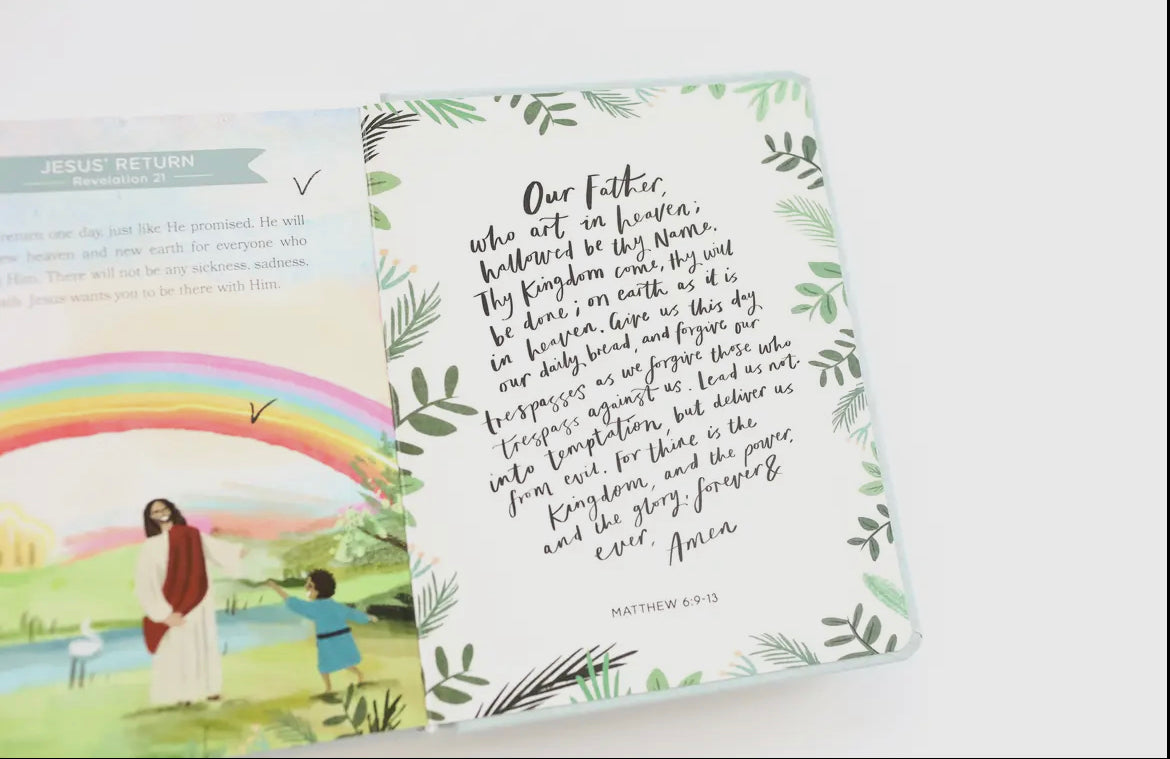 JESUS' RETURN
Revelation 21
return one day, just like He promised. He will
new heaven and new earth for everyone who
Him. There will not be any sickness, sadness,
Jesus wants you to be there with Him.
Our Father,
who art in heaven;
hallowed be thy Name.
Thy Kingdom come, thy will
be done; on earth as it is
in heaven. Give us this day
our daily bread, and forgive our
trespasses as we forgive those who
trespass against us. Lead us not
into temptation, but deliver us
from evil. For thine is the
Kingdom, and the power,
and the glory, forever &
ever, Amen
MATTHEW 6:9-13